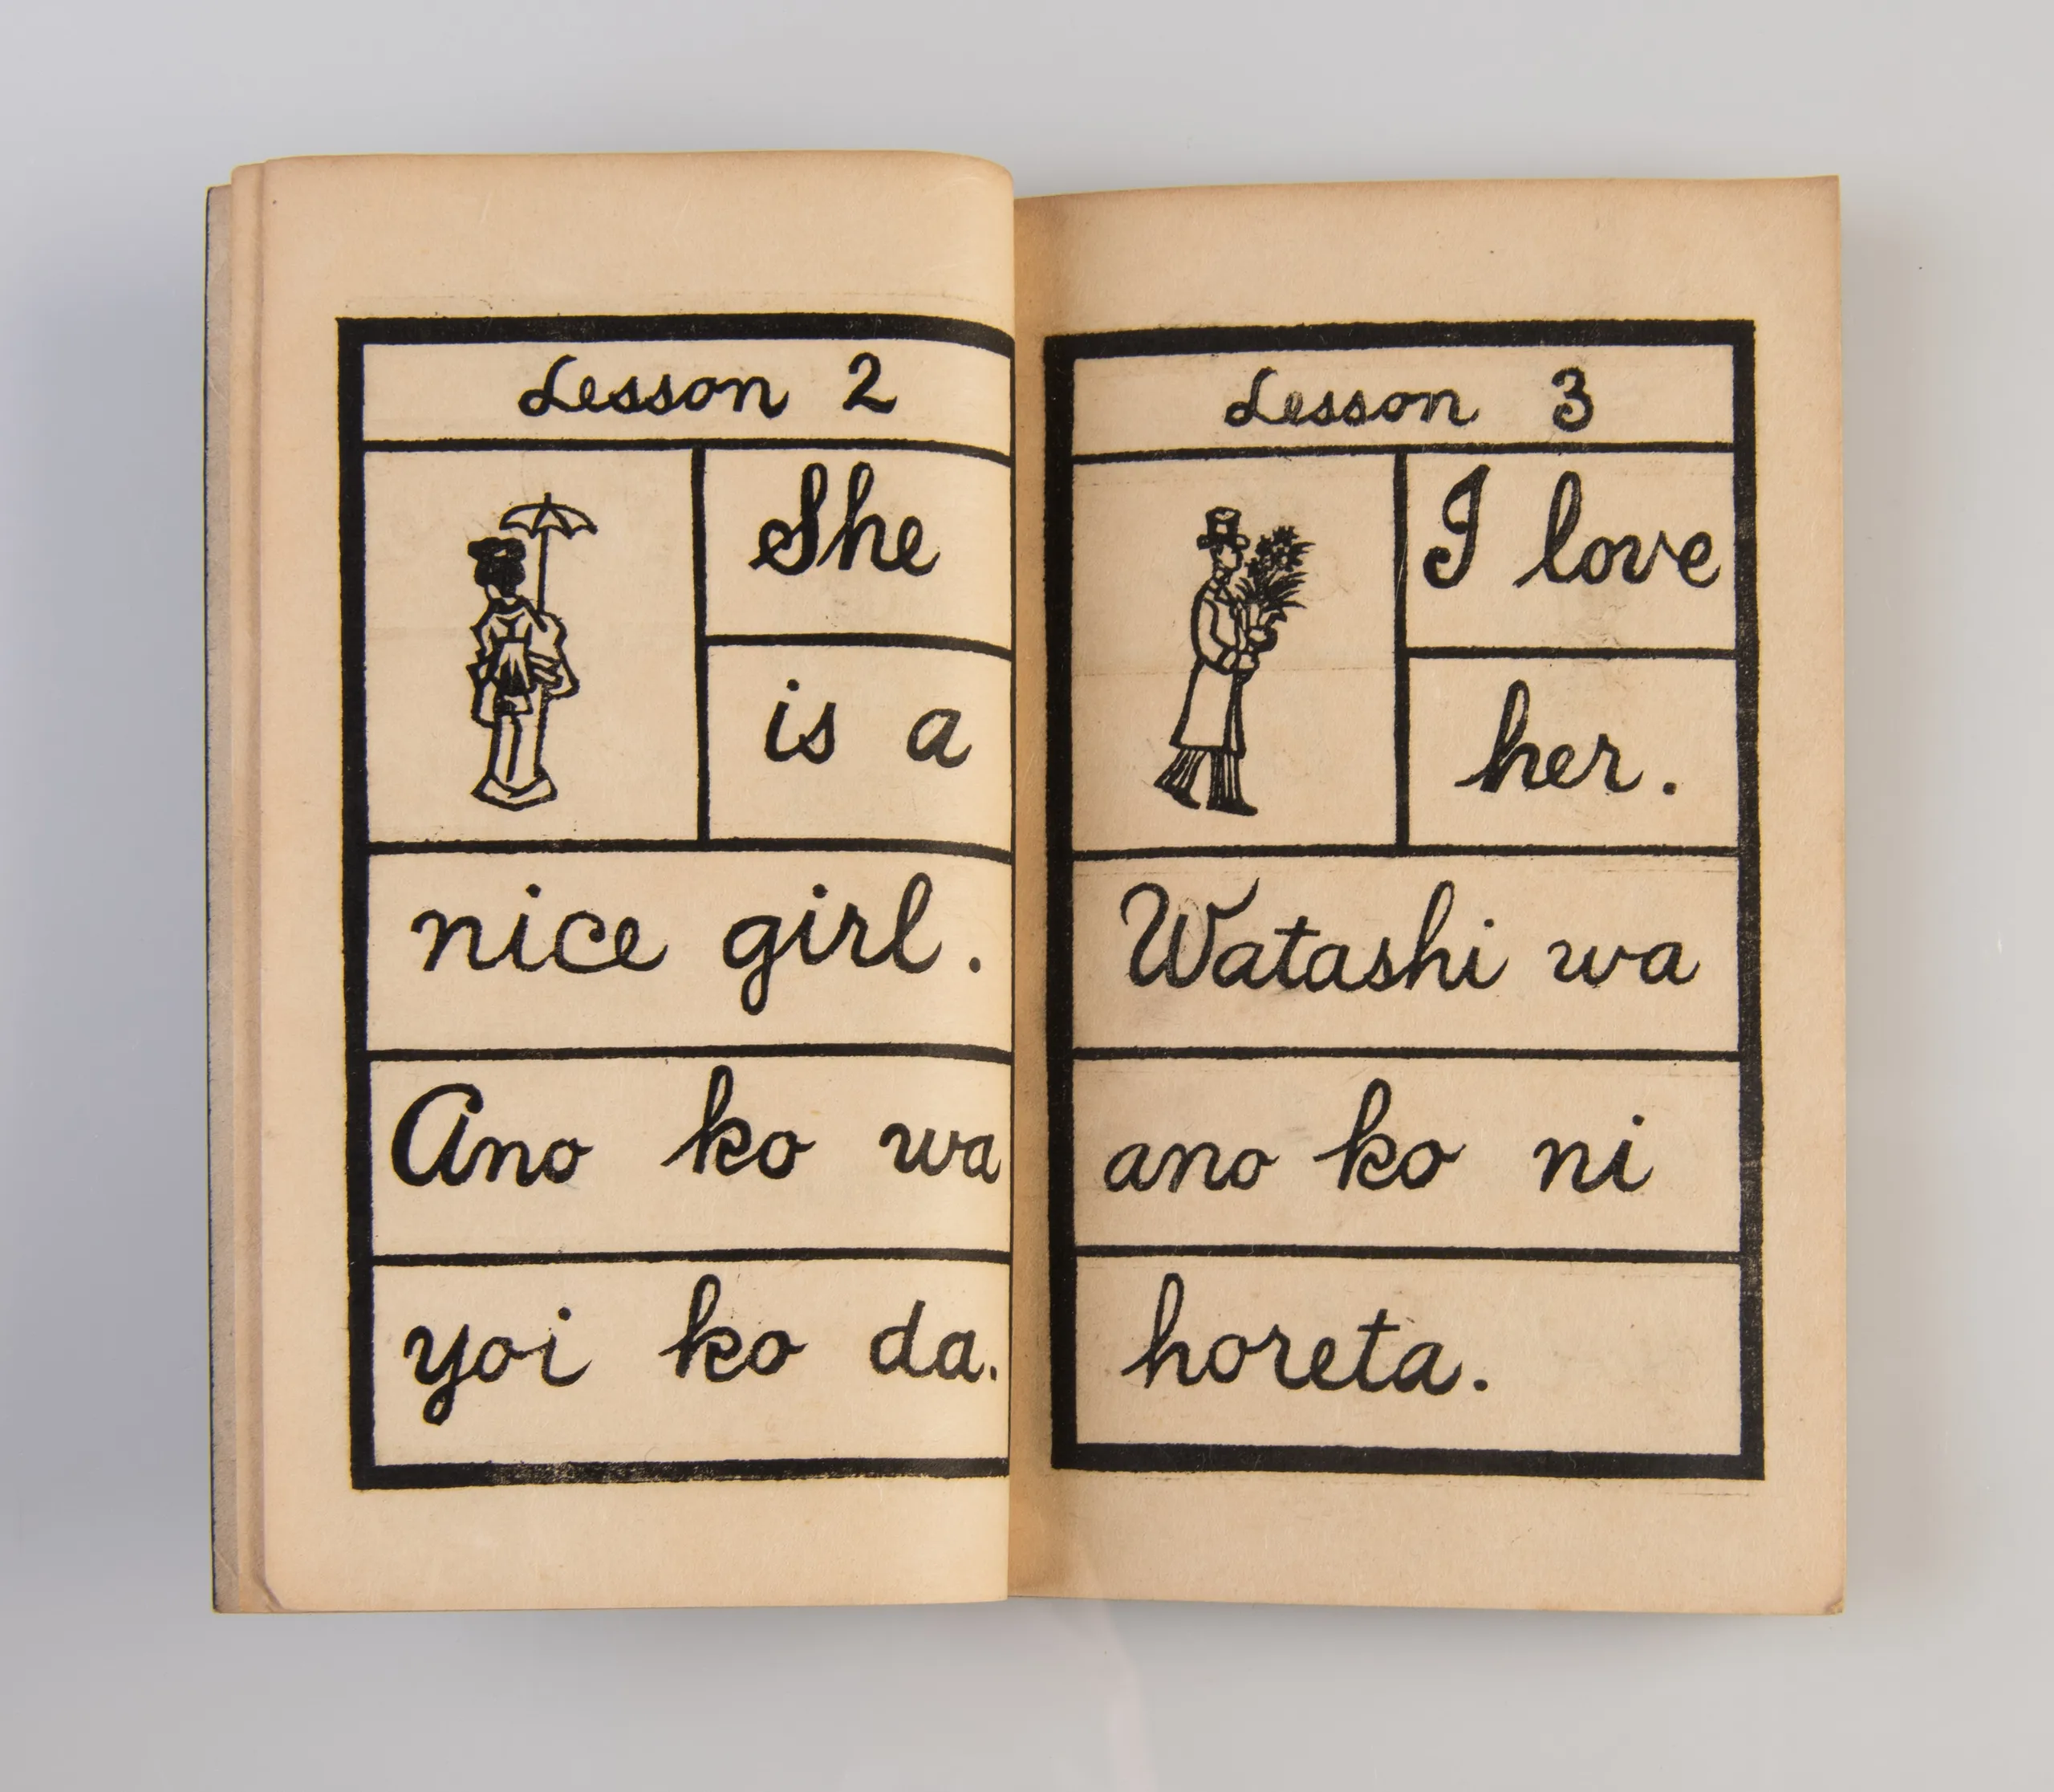 Lesson 2
She
is a
nice girl.
Ano ko wa
yoi ko da.
Lesson 3
I love
her.
Watashi wa
ano ko ni
horeta.